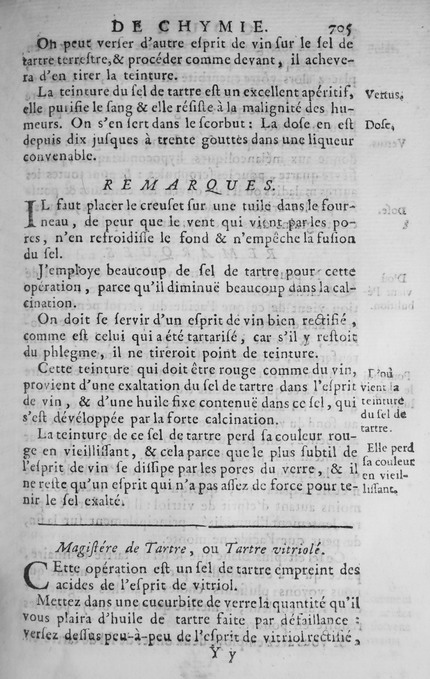 DE CHYMIE. 705
On peut verſer d'autre eſprit de vin ſur le ſel de
tartre terreſtre, & procéder comme devant, il acheve-
ra d'en tirer la teinture.
La teinture du ſel de tartre eſt un excellent apéritif,
elle purifie le ſang & elle réſiſte à la malignité des hu-
meurs. On s'en ſert dans le ſcorbut : La doſe en eſt
depuis dix juſques à trente gouttes dans une liqueur
convenable.
Vertus.
Doſe.
REMARQUES.
IL faut placer le creuſet ſur une tuile dans le four-
neau, de peur que le vent qui vient par les po-
res, n'en refroidiſſe le fond & n'empêche la fuſion
du ſel.
J'employe beaucoup de ſel de tartre pour cette
opération, parce qu'il diminuë beaucoup dans la cal-
cination.
On doit ſe ſervir d'un eſprit de vin bien rectifié,
comme eſt celui qui a été tartariſé, car s'il y reſtoit
du phlegme, il ne tireroit point de teinture.
Cette teinture qui doit être rouge comme du vin,
provient d'une exaltation du ſel de tartre dans l'eſprit
de vin, & d'une huile fixe contenuë dans ce ſel, qui
s'eſt dévéloppée par la forte calcination.
D'où
vient la
teinture
du ſel de
tartre.
La teinture de ce ſel de tartre perd ſa couleur rou-
ge en vieilliſſant, & cela parce que le plus ſubtil de
l'eſprit de vin ſe diſſipe par les pores du verre, & il
ne reſte qu'un eſprit qui n'a pas aſſez de force pour te-
nir le ſel exalté.
Elle perd
ſa couleur
en vieil-
liſſant.
Magiſtére de Tartre, ou Tartre vitriolé.
CEtte opération eſt un ſel de tartre empreint des
acides de l'eſprit de vitriol.
Mettez dans une cucurbite de verre la quantité qu'il
vous plaira d'huile de tartre faite par défaillance :
verſez deſſus peu-à-peu de l'eſprit de vitriol rectifié,
Y y